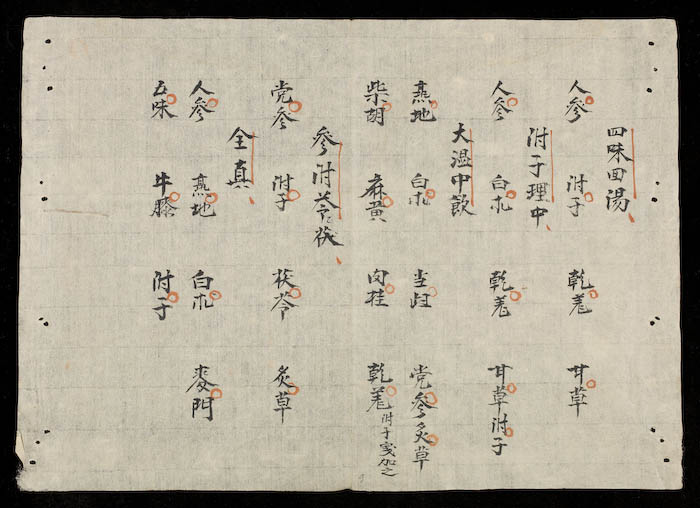 四味回湯
人參 附子 乾羌 甘草
附子理中
人參 白朮 乾羌 甘草 附子
大温中飲
熹地 白朮 当歸 党參 炙草
柴胡 麻黄 肉桂 乾羌 附子或加之
參附苓茯
党參 附子 茯苓 炙草
全真
人參 熹地 白朮 麥門
五味 牛膝 附子